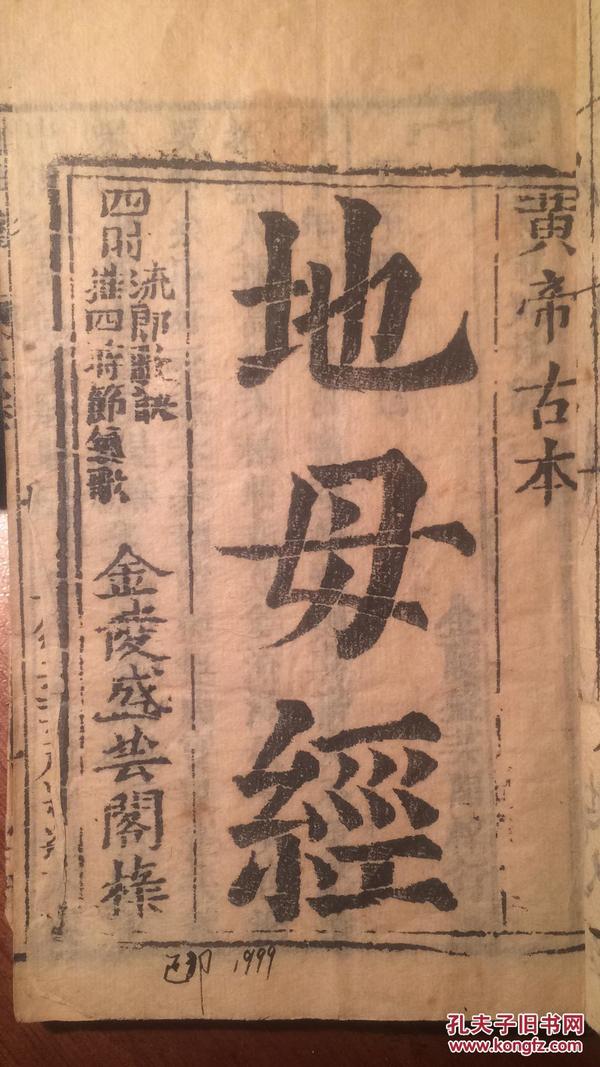 黄帝古本
地母經
四时
流郎數訣
推四時節氣歌
金陵盛芸閣梓
1999
孔夫子旧书网
www.kongfz.com